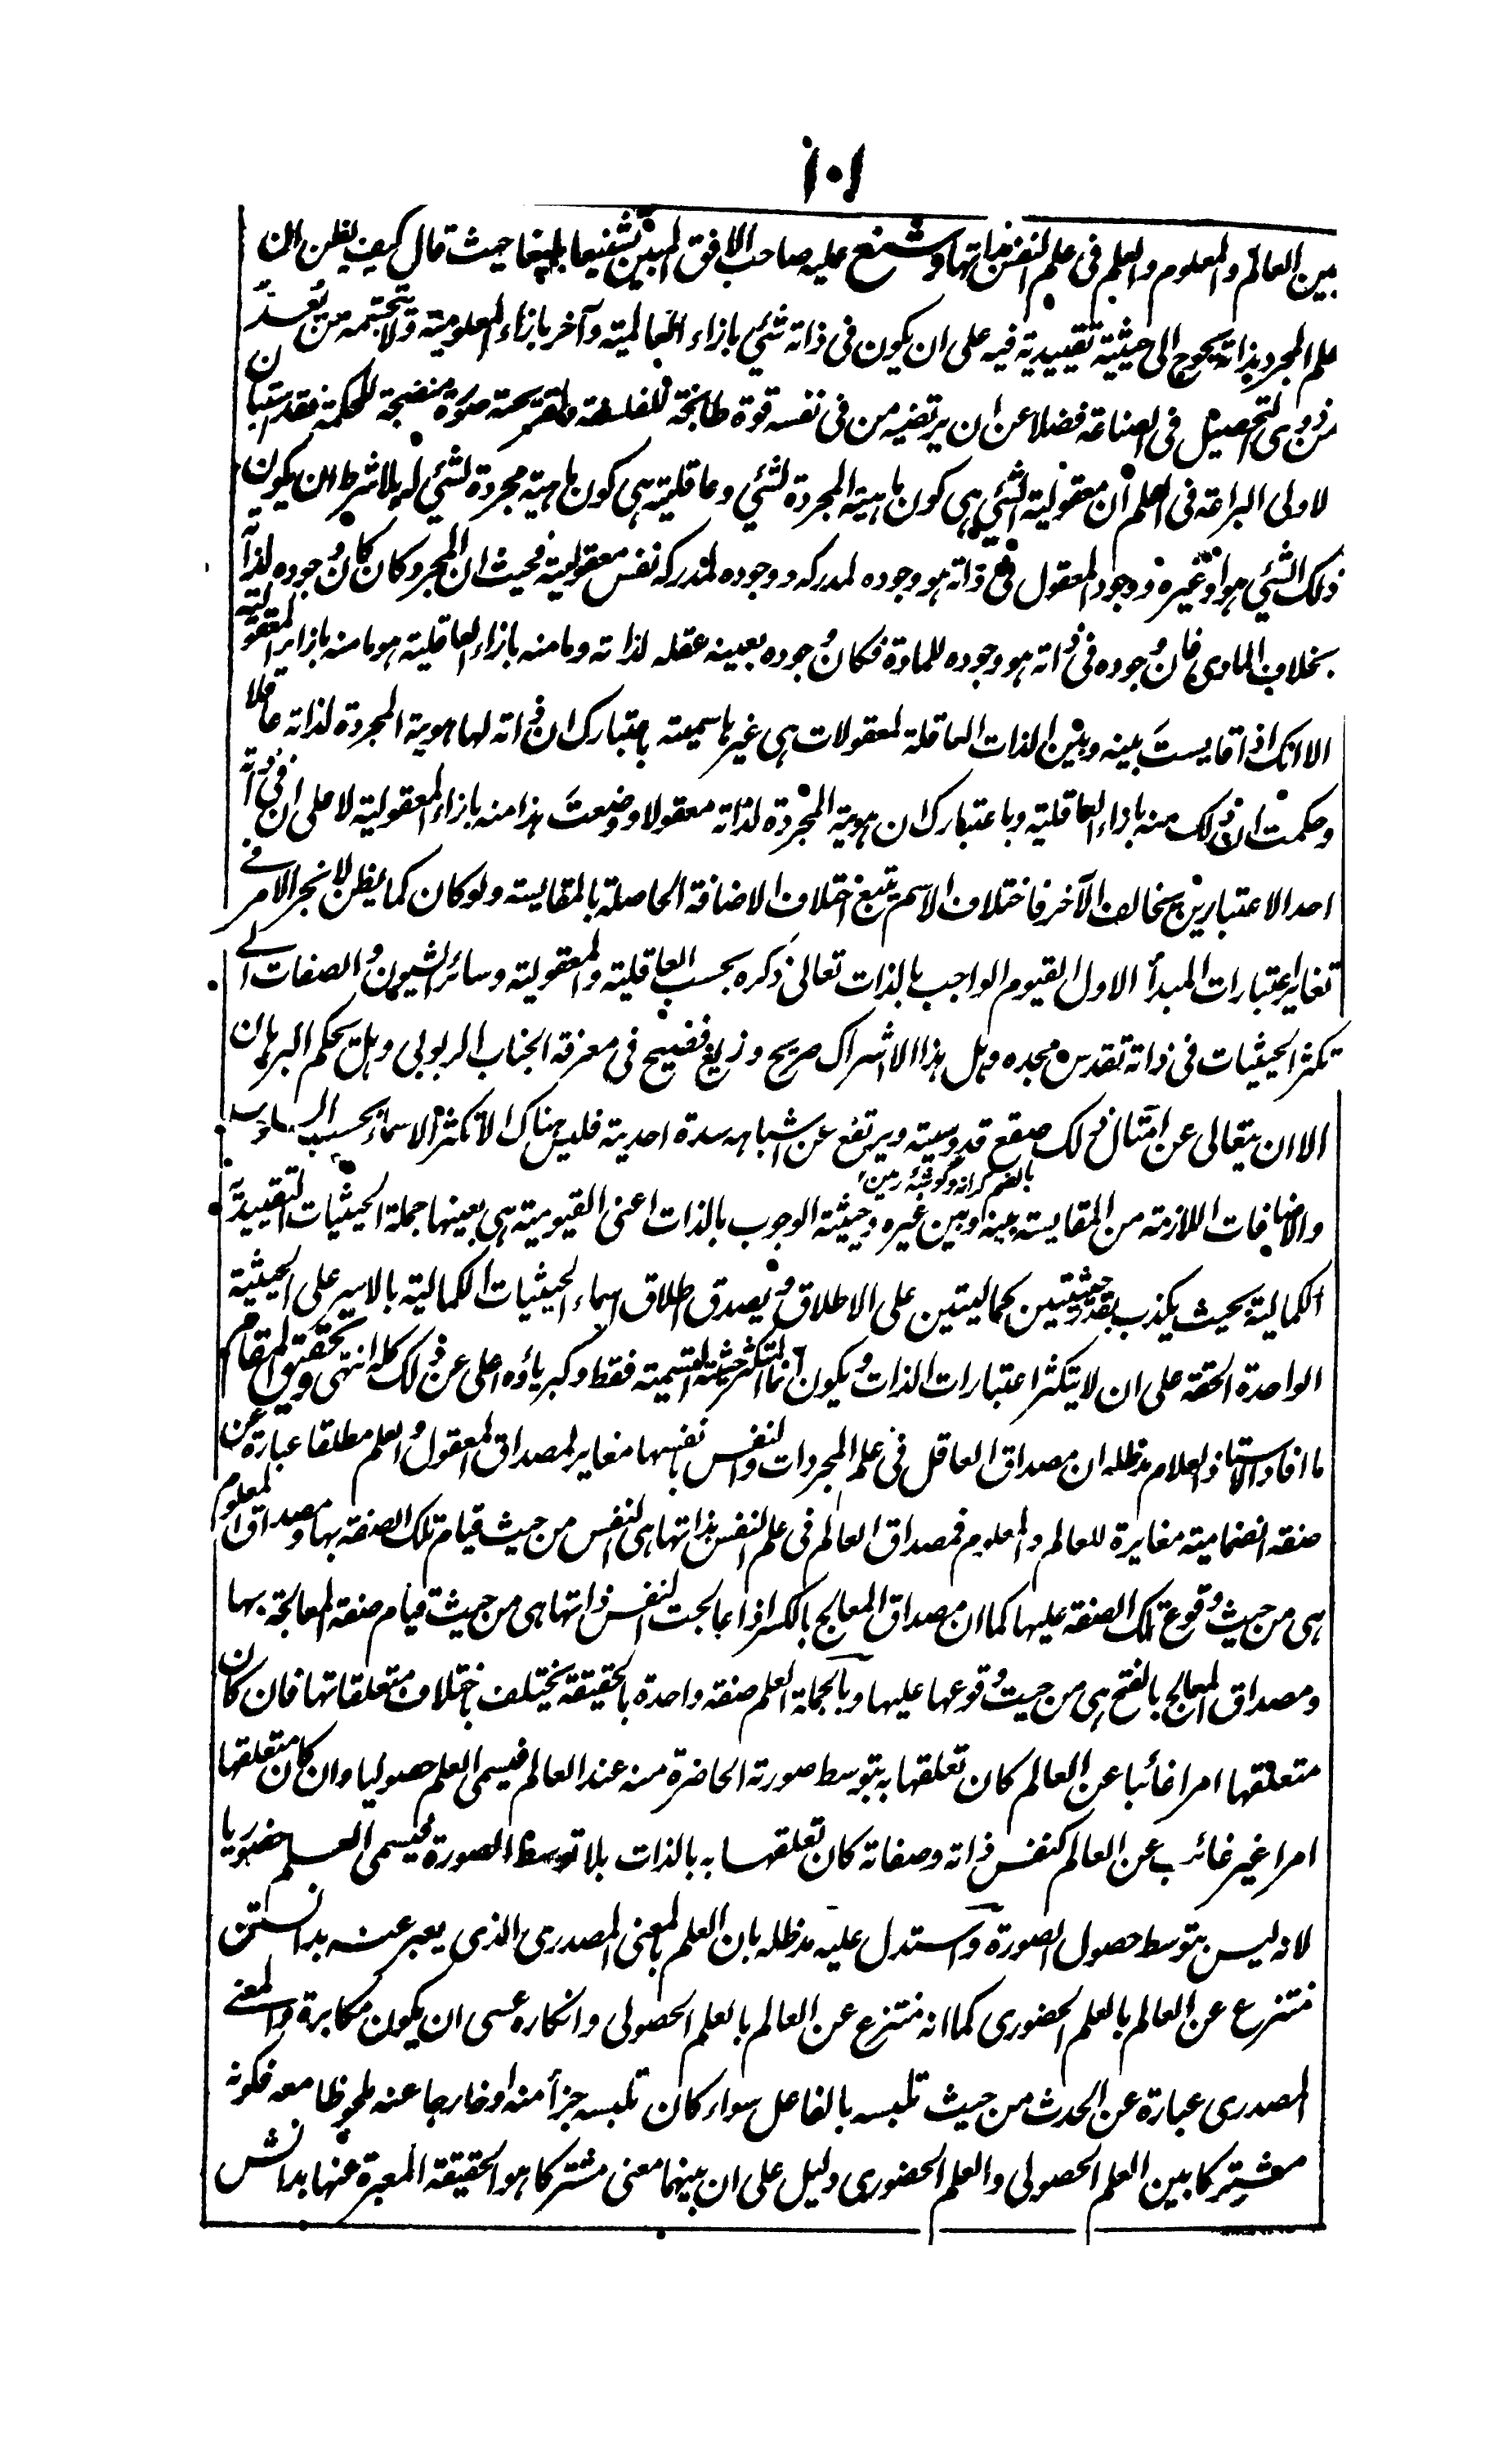 ١٠١
بين العالم والمعلوم والعلم فى علم النفس بذاتها وشنع عليه صاحب الافق المبين تشنيعا بليغا حيث قال كيف يظن ان
علم المجرد بذاته يحوج الى حيثية تقييدية فيه على ان يكون فى ذاته شئ بازاء العالمية وآخر بازاء المعلومية ولا تحتمه من يعد
من ذوى التحصيل فى الصناعة فضلا عن ان يرتضيه من فى نفسه قوة طابخة للفلسفة وقريحة منضجة للحكمة فقد استبان
لاولى البراعة فى العلم ان معقولية الشئ هى كون ماهيته المجردة لشئ وعاقليته هى كون ماهية مجردة لشئ له بلا شرط ان يكون
ذلك الشئ هو او غيره ووجود المعقول فى ذاته هو وجوده لمدركه ووجوده لمدركه نفس معقوليته فحيث ان المجرد كان كان وجوده لذاته
بخلاف المادى فان وجوده فى ذاته هو وجوده للمادة فكان وجوده بعينه عقله لذاته وما منه بازاء العاقلية هو ما منه بازاء المعقولية
الا انك اذا قايست بينه وبين الذات العاقلة لمعقولات هى غيرها سميته باعتبارك ان ذاته لها هوية المجردة لذاته عاقلا
وحكمت ان ذلك منه بازاء العاقلية وباعتبارك ان هويته المجردة لذاته معقولا ووضعت هذا منه بازاء المعقولية لا على ان فى ذاته
احد الاعتبارين يخالف الآخر فاختلاف الاسم يتبع اختلاف الاضافة الحاصلة بالمقايسة ولو كان كما يظن لا نجر الامر فى
تغاير اعتبارات المبدأ الاول القيوم الواجب بالذات تعالى ذكره بحسب العاقلية والمعقولية وسائر الشيون والصفات الى
تكثر الحيثيات فى ذاته تقدس مجده وهل هذا الا اشراك صريح وزيغ فضيح فى معرفة الجناب الربوبى وهل يحكم البرهان
الا ان يتعالى عن امثال ذلك صقع قدوسيته ويرتفع عن اشباهه سدة احديته فليس هناك الا تكثر الاسماء بحسب السلوب
بالضم كرانه وگوشهٔ زمين
والاضافات اللازمة من المقايسة بينه وبين غيره وحيثية الوجوب بالذات اعنى القيومية هى بعينها جملة الحيثيات التقييدية
الكمالية بحيث يكذب بقدر حيثيتين كماليتين على الاطلاق ويصدق اطلاق اسماء الحيثيات الكمالية بالاسير على الحيثية
الواحدة الحقة على ان لا يتكثر اعتبارات الذات ويكون انما التكثر حيثية التسمية فقط وكبرياؤه اعلى عن ذلك كله انتهى وتحقيق المقام
ما افاد الاستاذ العلام مدظله ان مصداق العاقل فى علم المجردات والنفس بانفسها مغاير لمصداق المعقول والعلم مطلقا عبارة عن
صفة انضمامية مغايرة للعالم والمعلوم فمصداق العالم فى علم النفس بذاتها هى النفس من حيث قيام تلك الصفة بها ومصداق المعلوم
هى من حيث وقوع تلك الصفة عليها كما ان مصداق المعالج بالكسر اذا عالجت النفس ذاتها هى من حيث قيام صفة المعالجة بها
ومصداق المعالج بالفتح هى من حيث وقوعها عليها وبالجملة العلم صفة واحدة بالحقيقة يختلف باختلاف متعلقاتها فان كان
متعلقها امرا غائبا عن العالم كان تعلقها به بتوسط صورته الحاضرة منه عند العالم فيسمى العلم حصوليا وان كان متعلقها
امرا غير غائب عن العالم كنفس ذاته وصفاته كان تعلقها به بالذات بلا توسط الصورة فيسمى العلم حضوريا
لانه ليس بتوسط حصول الصورة واستدل عليه مدظله بان العلم بالمعنى المصدرى الذى يعبر عنه بدانستن
منتزع عن العالم بالعلم الحضورى كما انه منتزع عن العالم بالعلم الحصولى وانكاره عسى ان يكون مكابرة والمعنى
المصدرى عبارة عن الحدث من حيث تلبسه بالفاعل سواء كان تلبسه جزأ منه او خارجا عنه ملحوظا معه فكونه
مشتركا بين العلم الحصولى والعلم الحضورى دليل على ان بينهما معنى مشتركا هو الحقيقة المعبرة عنها بدانش